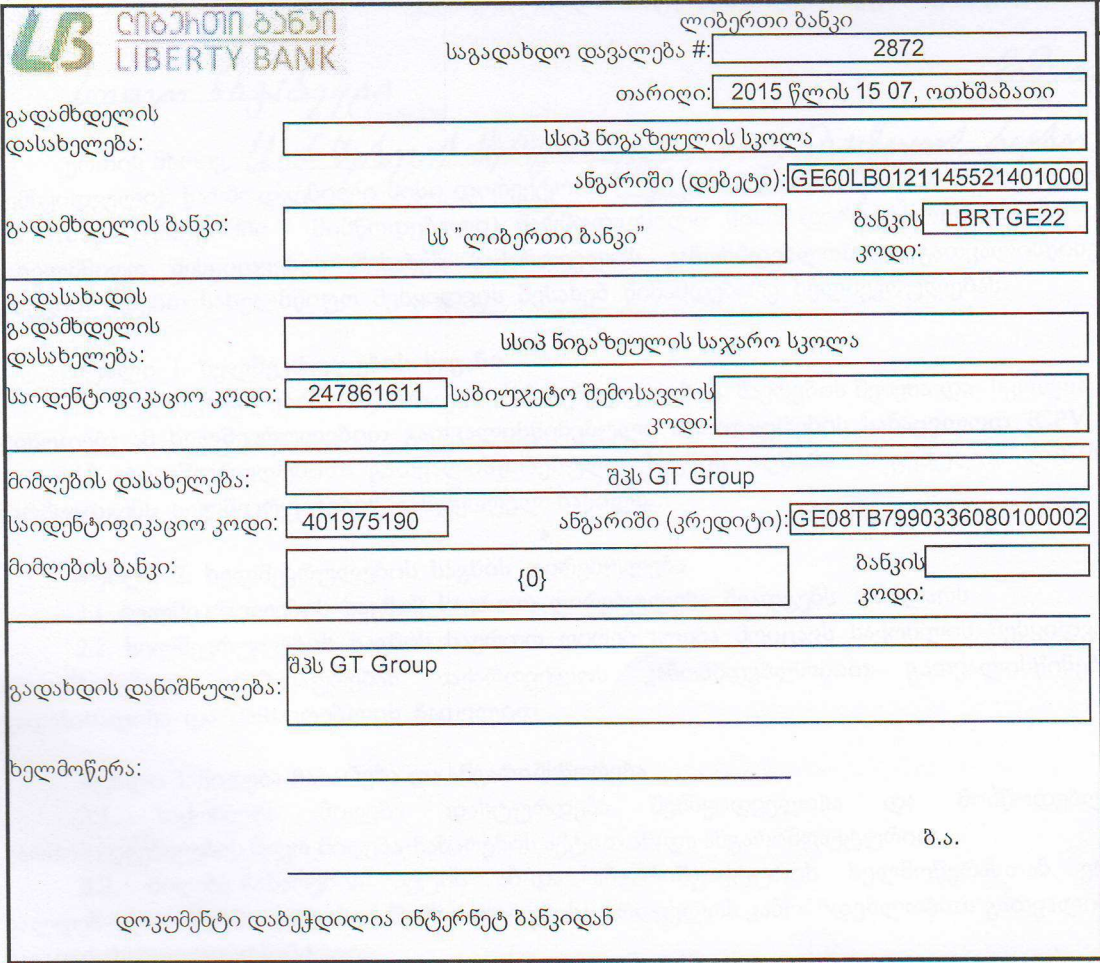 ლიბერთი ბანკი
LIBERTY BANK
ლიბერთი ბანკი
საგადახდო დავალება #: 2872
თარიღი: 2015 წლის 15 07, ოთხშაბათი
გადამხდელის
დასახელება: სსიპ ნიგაზეულის სკოლა
ანგარიში (დებეტი): GE60LB0121145521401000
გადამხდელის ბანკი: სს "ლიბერთი ბანკი" ბანკის LBRTGE22
კოდი:
გადასახადის
გადამხდელის
დასახელება: სსიპ ნიგაზეულის საჯარო სკოლა
საიდენტიფიკაციო კოდი: 247861611 საბიუჯეტო შემოსავლის
კოდი:
მიმღების დასახელება: შპს GT Group
საიდენტიფიკაციო კოდი: 401975190 ანგარიში (კრედიტი): GE08TB7990336080100002
მიმღების ბანკი: {0} ბანკის
კოდი:
შპს GT Group
გადახდის დანიშნულება:
ხელმოწერა:
ბ.ა.
დოკუმენტი დაბეჭდილია ინტერნეტ ბანკიდან